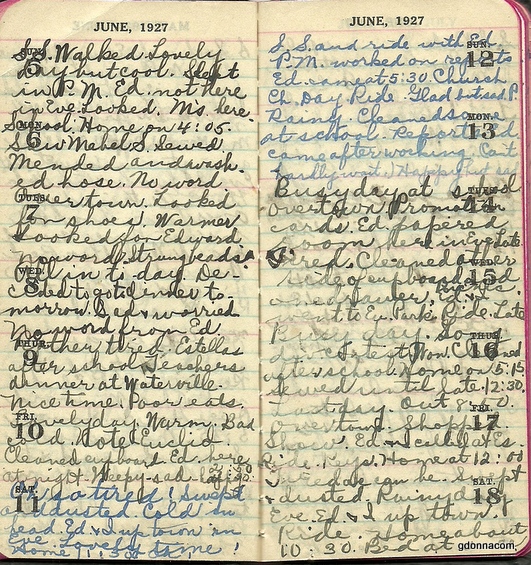 JUNE, 1927
SUN. 5
S.S. Walked Lovely
day but cool. Slept
in P.M. Ed. not here
in Eve. Looked. M's. here.
MON. 6
School. Home on 4:05.
Saw Mabel S. Sewed
Mended and wash-
ed hose. No word
TUES. 7
Over town. Looked
for shoes. Warmer
Looked for Edward.
No word Strung beads.
WED. 8
All in to day. De-
cided to go to
morrow. Sewed & worried
No word from Ed.
THUR. 9
Rather tired. Estellas
after school. Teachers
dinner at Waterville.
Nice time. Poor eats.
FRI. 10
Lovely day. Warm. Bad
Ed. Note Euclid
Cleaned cupboard Ed. here
at night. Weepy - sad
SAT. 11
tired! Swept
and dusted Cold in
head Ed & I up town in
Eve. Lovely time!
Home 1:30
JUNE, 1927
SUN. 12
S.S. and ride with Ed.
P.M. worked on reports
Ed. came at 5:30 Church
Ch. Day Ride. Glad but sad P.
MON. 13
Rainy. Cleaned some
at school. Report
came after working. Can't
hardly wait. Happy
TUES. 14
Busy day at school
over town Promotion
cards. Ed. papered
room here in Eve Late
WED. 15
Tired. Cleaned other
side of cupboard and
drawer. Ed. & I
went to Eu. Park Ride. Late
THUR. 16
Busy day. So
tired. Mon. Cleaned
after school. Home on 5:15
Sewed until late 12:30.
FRI. 17
Last day. Out
Over town. Shopp
Show. Ed & I called at Es
Ride. Keys. Home at 12:00
SAT. 18
can be. Swept
& dusted. Rainy day
Eve Ed & I up town.
Ride. Home about
10:30. Bed at
gdonnacom